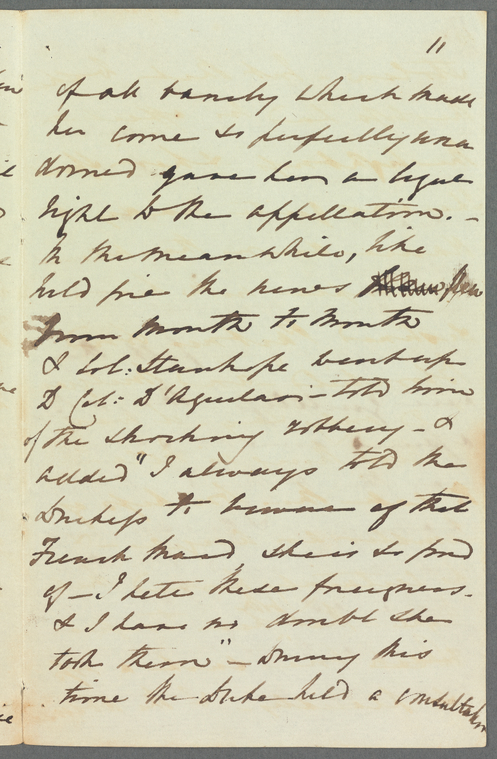 11
of all vanity which made
her come so perfectly una
dorned gave her a legal
right to the appellation. -
In the meanwhile, like
wild fire the news flew
from Month to Month
& Col: Stanhope went up
to Col: D'Aguilar - told him
of the shocking robbery - &
added "I always told the
Duchess to beware of that
French Maid she is so fond
of - I hate these foreigners.
& I have no doubt she
took them" - During this
time the Duke held a consultation